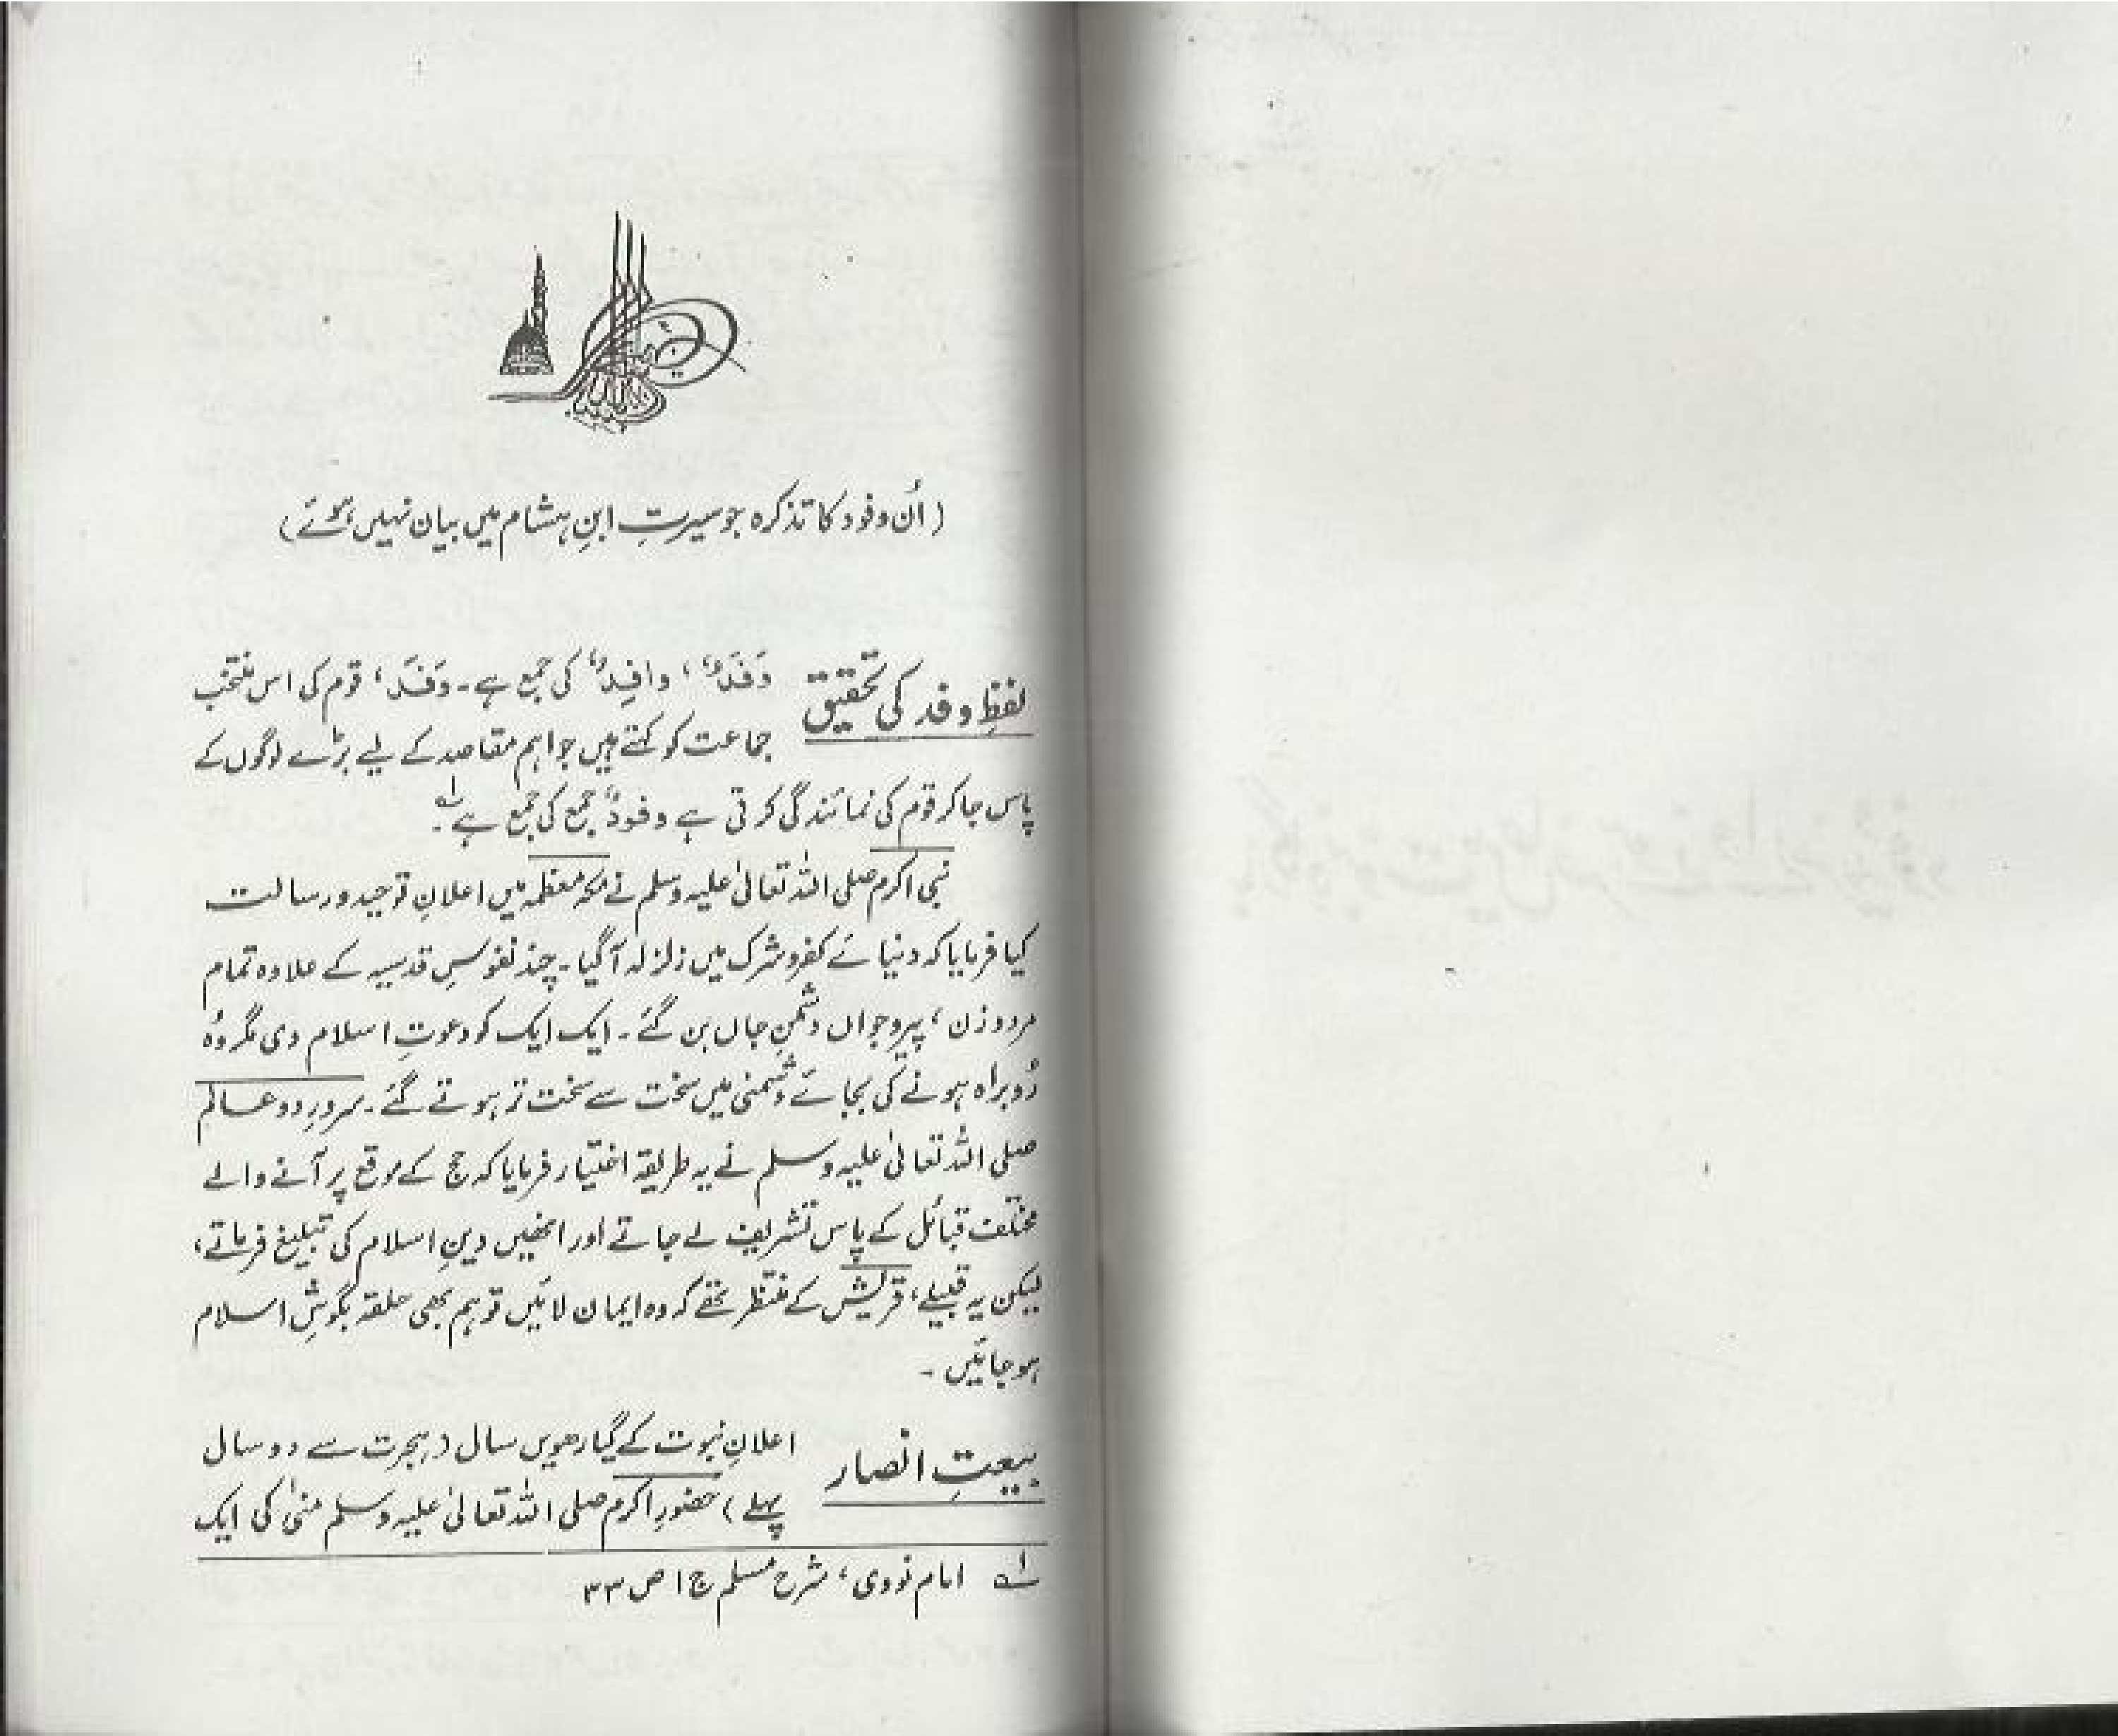 (اُن وفود کا تذکرہ جو سیرتِ ابنِ ہشام میں بیان نہیں ہوئے)
لفظِ وفد کی تحقیق
وَفْدٌ، وافِدٌ کی جمع ہے۔ وَفد، قوم کی اس منتخب
جماعت کو کہتے ہیں جو اہم مقاصد کے لیے بڑے لوگوں کے
پاس جا کر قوم کی نمائندگی کرتی ہے وفودٌ جمع کی جمع ہے۔ لہ
نبی اکرم صلی اللہ تعالیٰ علیہ وسلم نے مکہ معظمہ میں اعلانِ توحید و رسالت
کیا فرمایا کہ دنیائے کفر و شرک میں زلزلہ آگیا۔ چند نفوسِ قدسیہ کے علاوہ تمام
مرد و زن، پیر و جواں دشمنِ جاں بن گئے۔ ایک ایک کو دعوتِ اسلام دی مگر وُہ
رُوبراہ ہونے کی بجائے دشمنی میں سخت سے سخت تر ہوتے گئے۔ سرورِ دو عالم
صلی اللہ تعالیٰ علیہ وسلم نے یہ طریقہ اختیار فرمایا کہ حج کے موقع پر آنے والے
مختلف قبائل کے پاس تشریف لے جاتے اور انھیں دینِ اسلام کی تبلیغ فرماتے،
لیکن یہ قبیلے، قریش کے منتظر تھے کہ وہ ایمان لائیں تو ہم بھی حلقہ بگوشِ اسلام
ہو جائیں۔
بیعتِ انصار
اعلانِ نبوت کے گیارھویں سال (ہجرت سے دو سال
پہلے) حضورِ اکرم صلی اللہ تعالیٰ علیہ وسلم منیٰ کی ایک
لہ امام نووی، شرح مسلم ج ۱ ص ۳۳